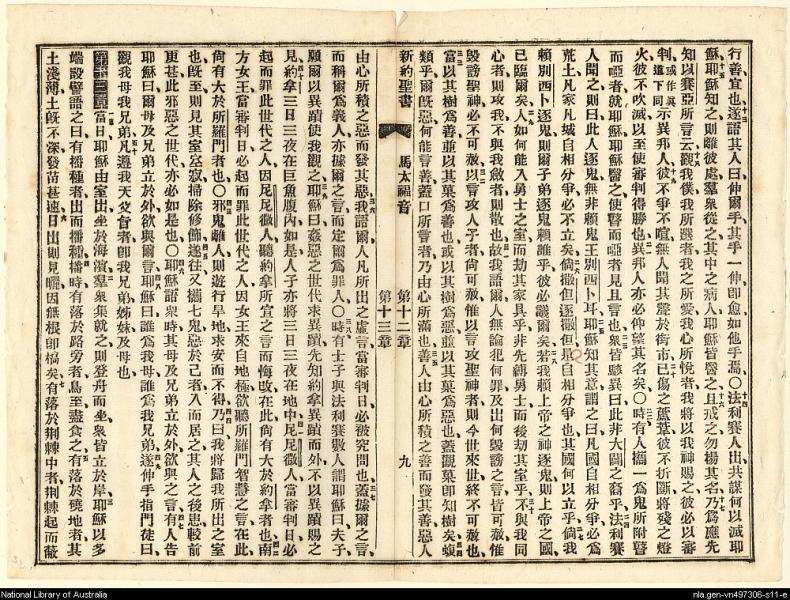 行善宜也遂語其人曰伸爾手其手一伸即愈如他手焉〇法利賽人出共謀何以滅耶
穌耶穌知之則離彼處羣衆從之其中之病人耶穌皆醫之且戒之勿揚其名乃爲應先
知以賽亞所言云觀我僕我所選者我之所愛我心所悅者我將以我神賜之彼必以審
判或作眞道下同示異邦人彼不爭不喧無人聞其聲於街市已傷之蘆葦彼不折斷將殘之燈
火彼不吹滅以至使審判得勝也異邦人亦必仰望其名矣〇時有人攜一爲鬼所附瞽
而啞者就耶穌耶穌醫之使瞽而啞者見且言也衆皆驚異曰此非大闢之裔乎法利賽
人聞之則曰此人逐鬼無非賴鬼王別西卜耳耶穌知其意謂之曰凡國自相分爭必爲
荒土凡家凡城自相分爭必不立矣倘撒但逐撒但是自相分爭也其國何以立乎倘我
賴別西卜逐鬼則爾子弟逐鬼賴誰乎彼必議爾矣若我賴上帝之神逐鬼則上帝之國
已臨爾矣人如何能入勇士之室而劫其家具乎非先縛勇士而後劫其室乎不與我同
心者則攻我不與我斂者則散也故我語爾人無論犯何罪及出何毀謗之言皆可赦惟
毀謗聖神必不可赦也以言攻人子者尚可赦惟以言攻聖神者則今世來世終不可赦也
當以其樹爲善並以其菓爲善也或以其樹爲惡並以其菓爲惡也蓋觀菓即知樹矣蝮
類乎爾旣惡何能言善蓋口所言者乃由心所滿也善人由心所積之善而發其善惡人
新約聖書 馬太福音 第十二章 第十三章 九
由心所積之惡而發其惡我語爾人凡所出之虛言當審判日必被究問也蓋據爾之言
而稱爾爲義人亦據爾之言而定爾爲罪人〇時有士子與法利賽數人謂耶穌曰夫子
願爾以異蹟使我觀之耶穌曰姦惡之世代求異蹟先知約拿異蹟而外不以異蹟賜之
見約拿三日三夜在巨魚腹內如是人子亦將三日三夜在地中尼尼微人當審判日必
起而罪此世代之人因尼尼微人聽約拿所宣之言而悔改在此尚有大於約拿者也南
方女王當審判日必起而罪此世代之人因女王來自地極欲聽所羅門智慧之言在此
尚有大於所羅門者也〇邪鬼離人則遊行旱地求安而不得乃曰我將歸我所出之室
也旣至則見其室室寂掃除修飾遂往又攜七鬼惡於己者入而居之其人之後患較前
更甚此邪惡之世代亦必如是也〇耶穌語衆時其母及兄弟立於外欲與之言有人告
耶穌曰爾母及兄弟立於外欲與爾言耶穌曰誰爲我母誰爲我兄弟遂伸手指門徒曰
觀我母我兄弟凡遵我天父旨者即我兄弟姊妹及母也
第十三章當日耶穌由室出坐於海濱羣衆集就之則登舟而坐衆皆立於岸耶穌以多
端設譬語之曰有播種者出而播種播時有落於路旁者鳥至盡食之有落於磽地者其
土淺薄土旣不深發苗甚速日出則見曬因無根即槁矣有落於荊棘中者荊棘起而蔽
National Library of Australia
nla.gen-vn497306-s11-e